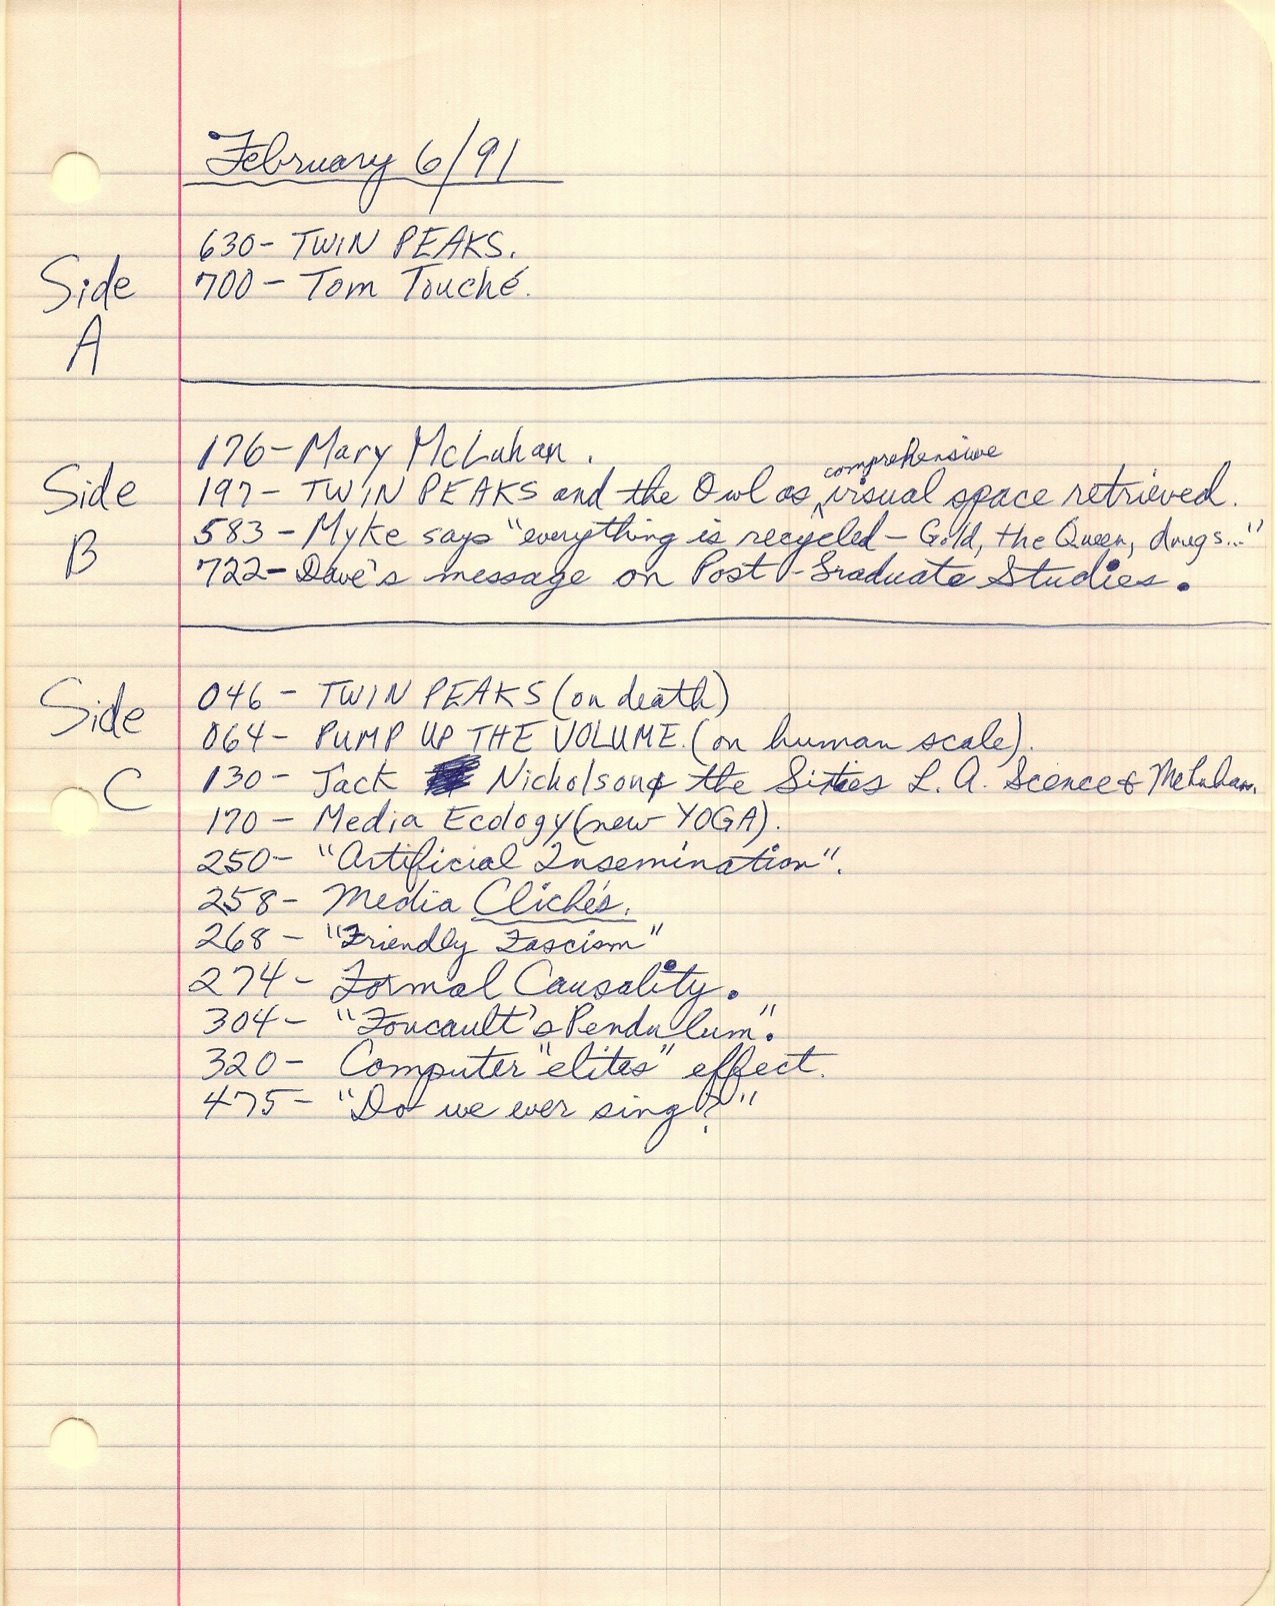 February 6/91
630- TWIN PEAKS.
Side 700- Tom Touché.
A
176- Mary McLuhan.
comprehensive
Side 197- TWIN PEAKS and the Owl as visual space retrieved.
583- Myke says "everything is recycled - Gold, the Queen, drugs..."
B 722- Dave's message on Post-Graduate Studies.
046- TWIN PEAKS (on death)
Side 064- PUMP UP THE VOLUME. (on human scale).
C 130- Jack Nicholson & the Sixties L.A. Scence & McLuhan.
170- Media Ecology (new YOGA).
250- "Artificial Insemination".
258- Media Clichés.
268- "Friendly Fascism"
274- Formal Causality.
304- "Foucault's Pendulum".
320- Computer "elites" effect.
475- "Do we ever sing?"